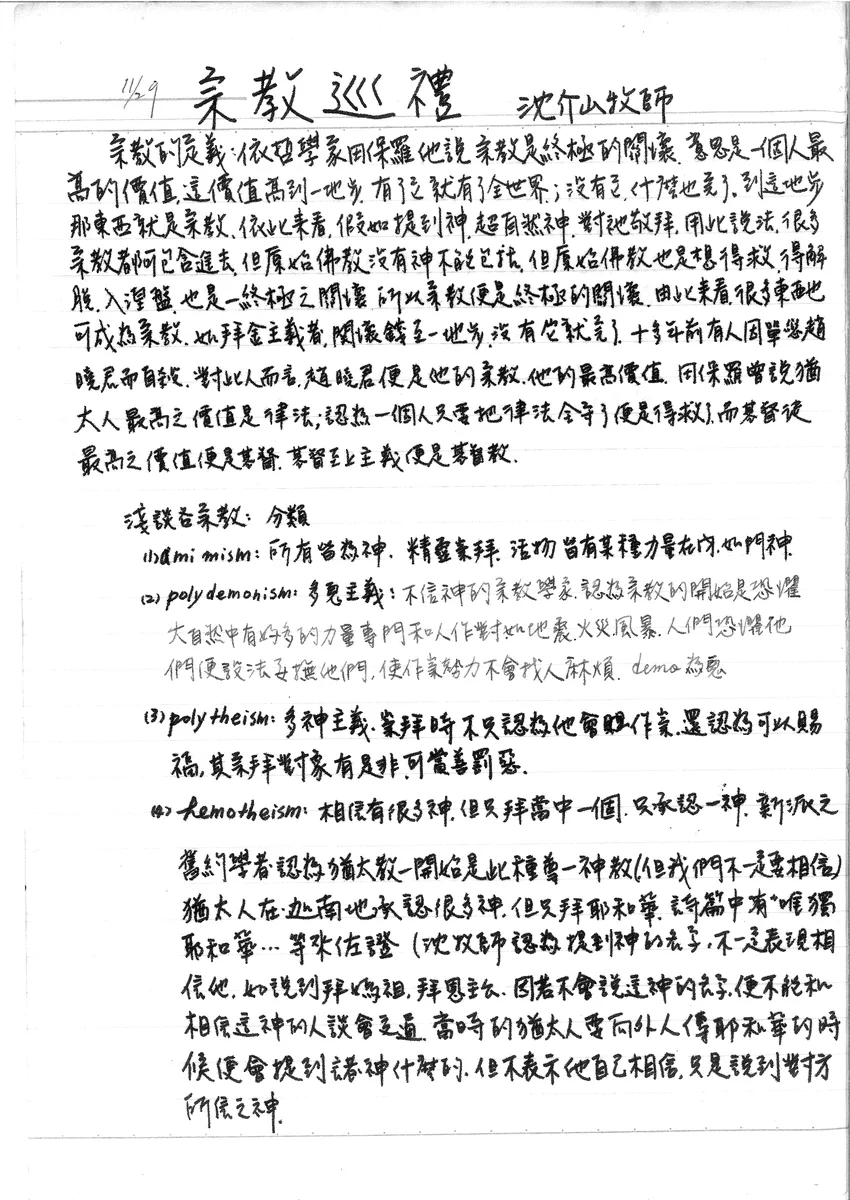 11/29 宗教巡禮 沈介山牧師
宗教的定義:依亞學家田保羅他說宗教是終極的關懷.意思是一個人最
高的價值,這價值高到一地步,有了它就有了全世界;沒有它,什麼也完了,到這地步
那東西就是宗教.依此來看,假如提到神,超自然神,對祂敬拜,用此說法,很多
宗教都可包含進去,但原始佛教沒有神不能包括,但原始佛教也是想得救,得解
脫,入涅盤,也是一終極之關懷,所以宗教便是終極的關懷.由此來看,很多東西也
可成為宗教.如拜金主義者,關懷錢至一地步,沒有它就完了.十多年前有人因單戀趙
曉君而自殺.對此人而言,趙曉君便是他的宗教.他的最高價值.田保羅曾說猶
太人最高之價值是律法;認為一個人只要把律法全守了便是得救了.而基督徒
最高之價值便是基督.基督至上主義便是基督教.
淺談各宗教:分類
(1)animism:所有皆為神.精靈崇拜.活物皆有某種力量在內.如門神.
(2)polydemonism:多鬼主義:不信神的宗教學家.認為宗教的開始是恐懼
大自然中有好多的力量專門和人作對如地震,火災,風暴.人們恐懼他
們便設法安撫他們,使作祟勢力不會找人麻煩.demo為鬼
(3)polytheism:多神主義.崇拜時不只認為他會作祟.還認為可以賜
福,其崇拜對象有是非,可賞善罰惡.
(4)henotheism:相信有很多神,但只拜當中一個.只承認一神.新派之
舊約學者認為猶太教一開始是此種尊一神教(但我們不一定要相信)
猶太人在迦南地承認很多神,但只拜耶和華.詩篇中有"唯獨
耶和華…等來佐證(沈牧師認為提到神的名字,不一定表現相
信他,如說到拜媽祖,拜恩主公.因若不會說這神的名字,便不能和
相信這神的人談會交通.當時的猶太人要向外人傳耶和華的時
候便會提到諸神什麼的.但不表示他自己相信,只是說到對方
所信之神.